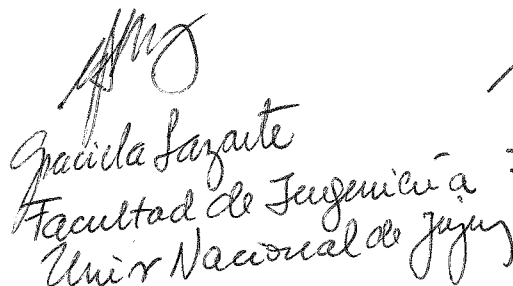 Graciela Lazarte
Facultad de Ingeniería
Univ Nacional de Jujuy